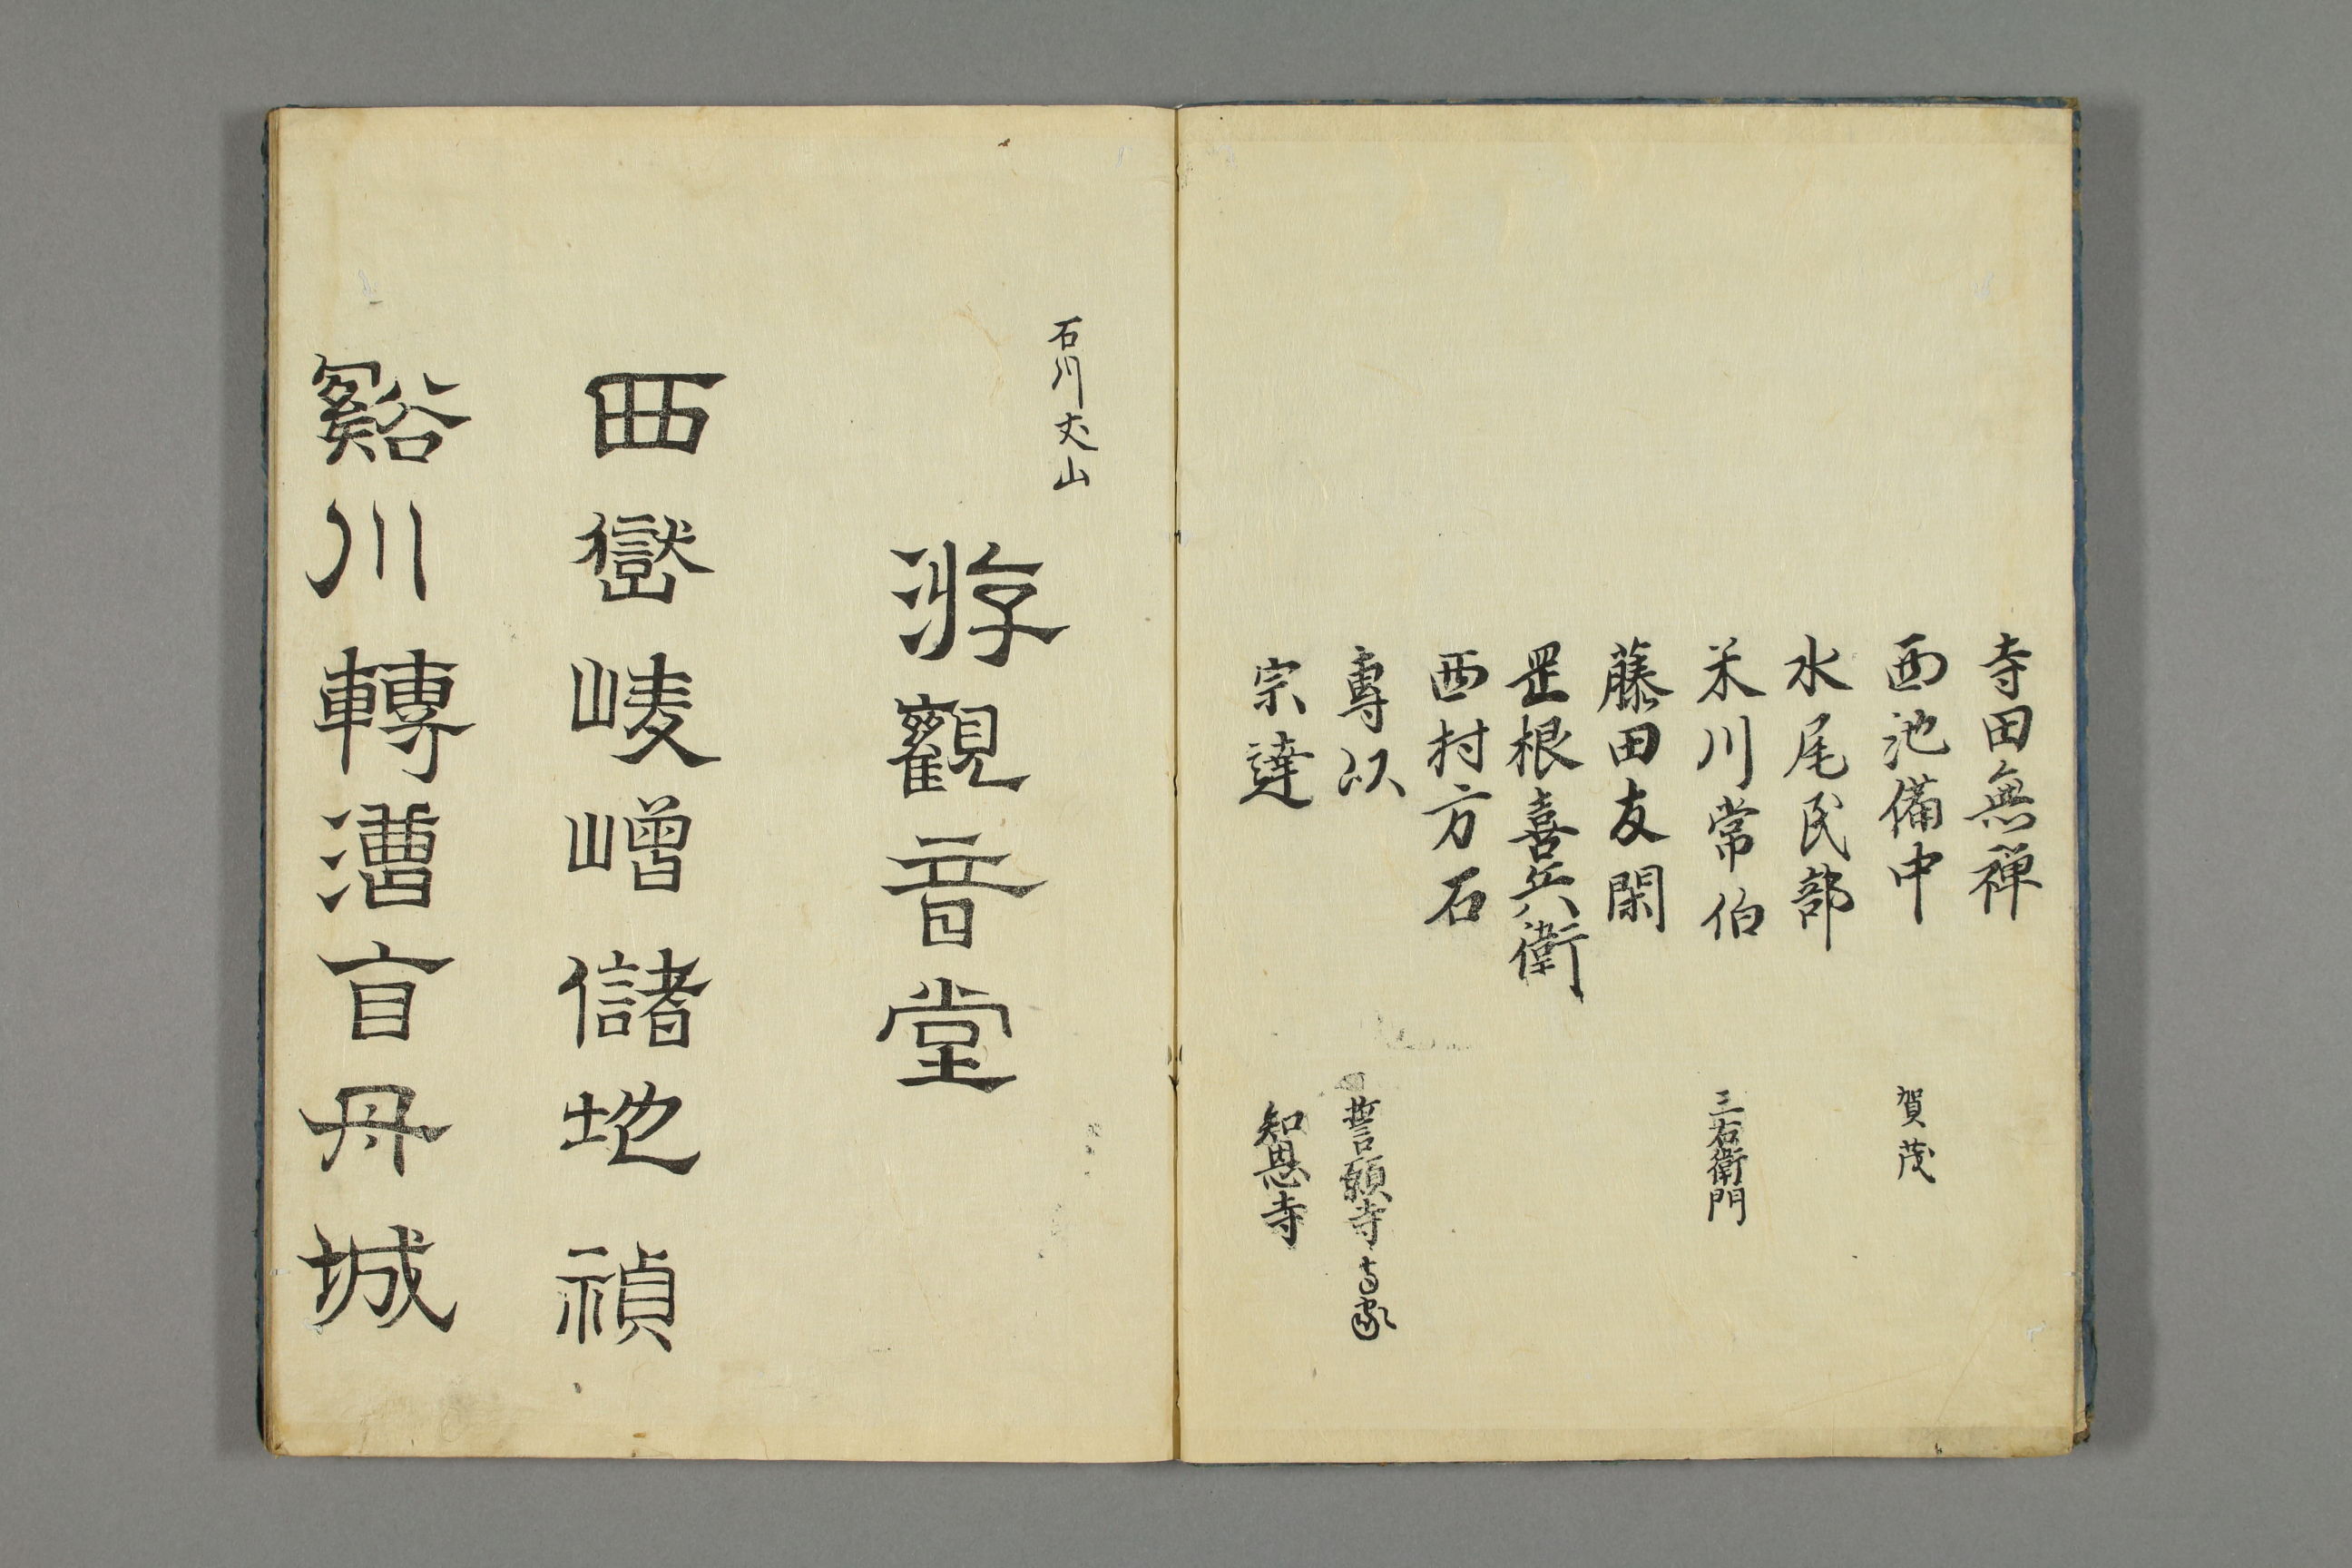 寺田無禅
西池備中 賀茂
水尾民部
米川常伯 三右衛門
藤田友閑
罡根喜兵衛
西村方石
專以 誓願寺
宗達 知恩寺
石川丈山
游觀音堂
西嶽崚嶒儲地禎
谿川轉漕盲丹城